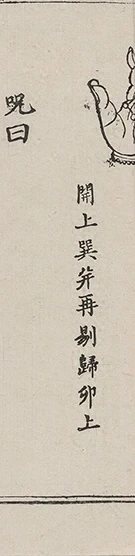 開上巽弁再剔歸卯上
呪曰